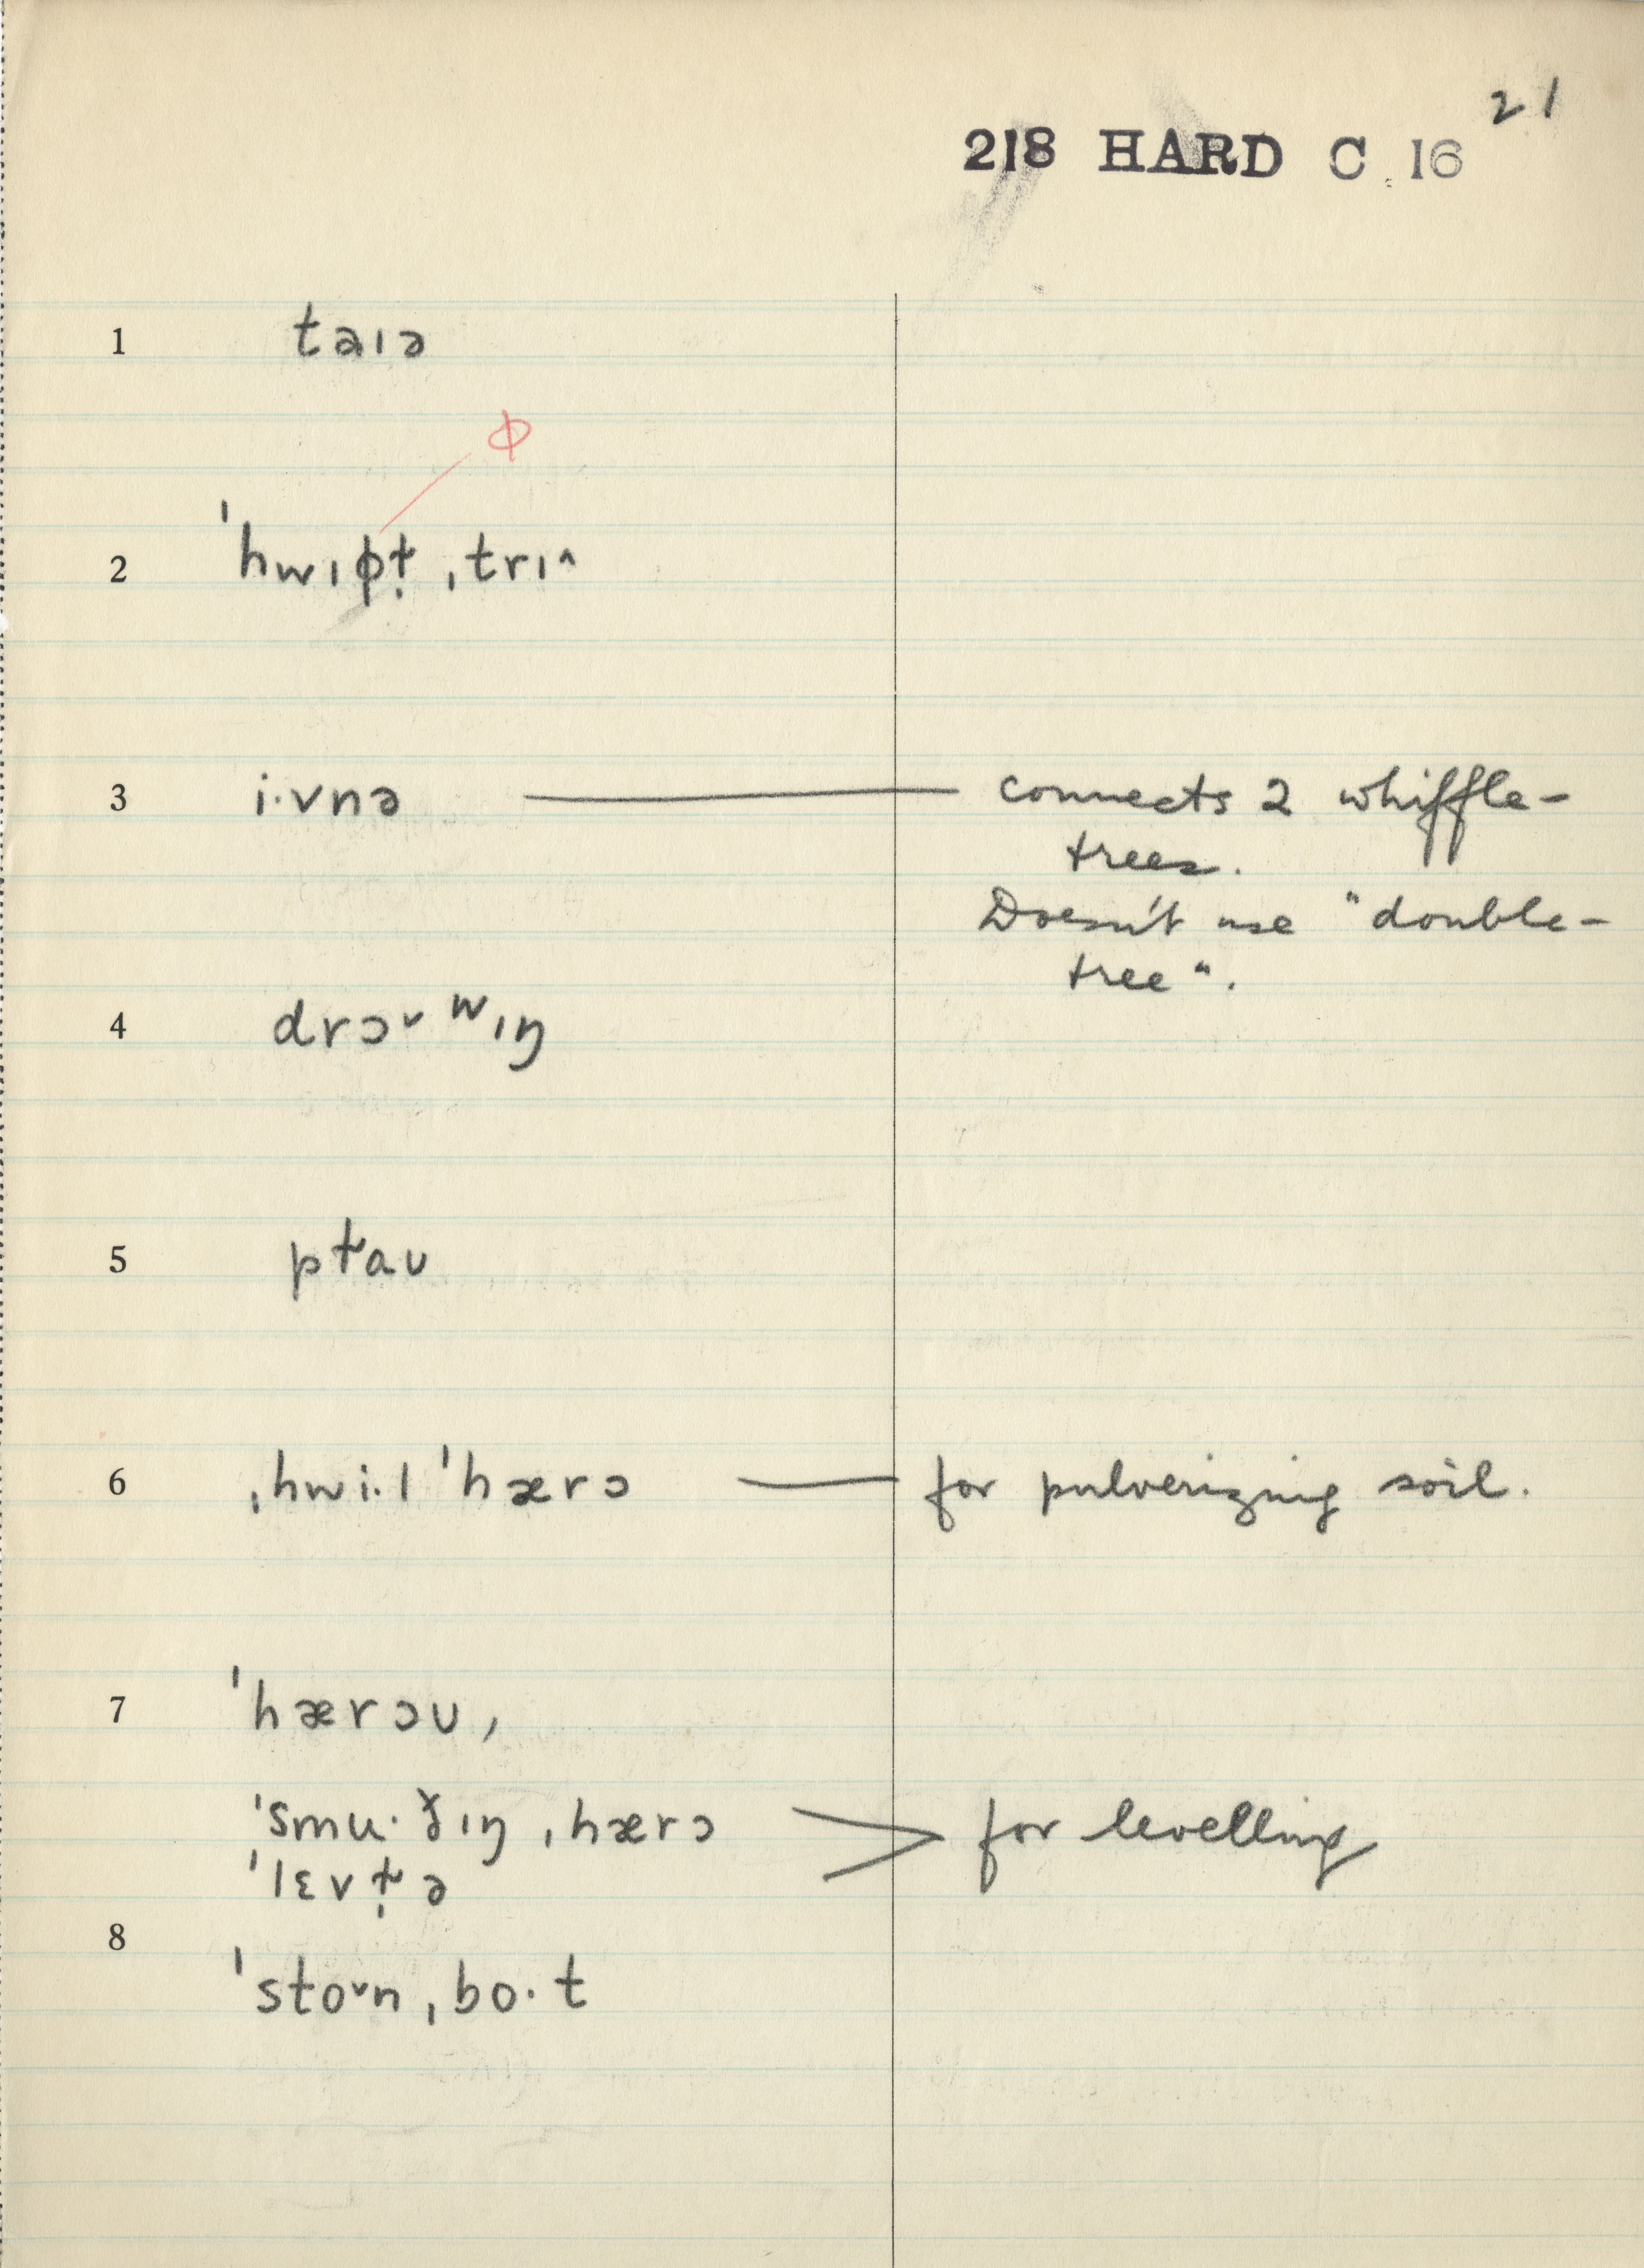 21
218 HARD C 16
1 taɪə
ɸ
2 ˈhwɪɸɫ̩ ˌtrɪ^
3 i·vnə — connects 2 whiffle-
trees.
Doesn't use "double-
tree".
4 drɔ˅ʷɪŋ
5 pɫaʊ
6 ˌhwi·l ˈhærɔ — for pulverizing soil.
7 ˈhærɔʊ,
ˈsmu·ðɪŋ ˌhærɔ > for levelling
ˈlɛvɫ̩ə
8
ˈsto˅n ˌbo·t